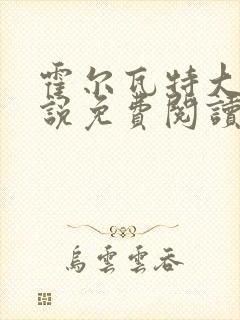 霍尔瓦特大
說免費閱讀
烏雲雲吞